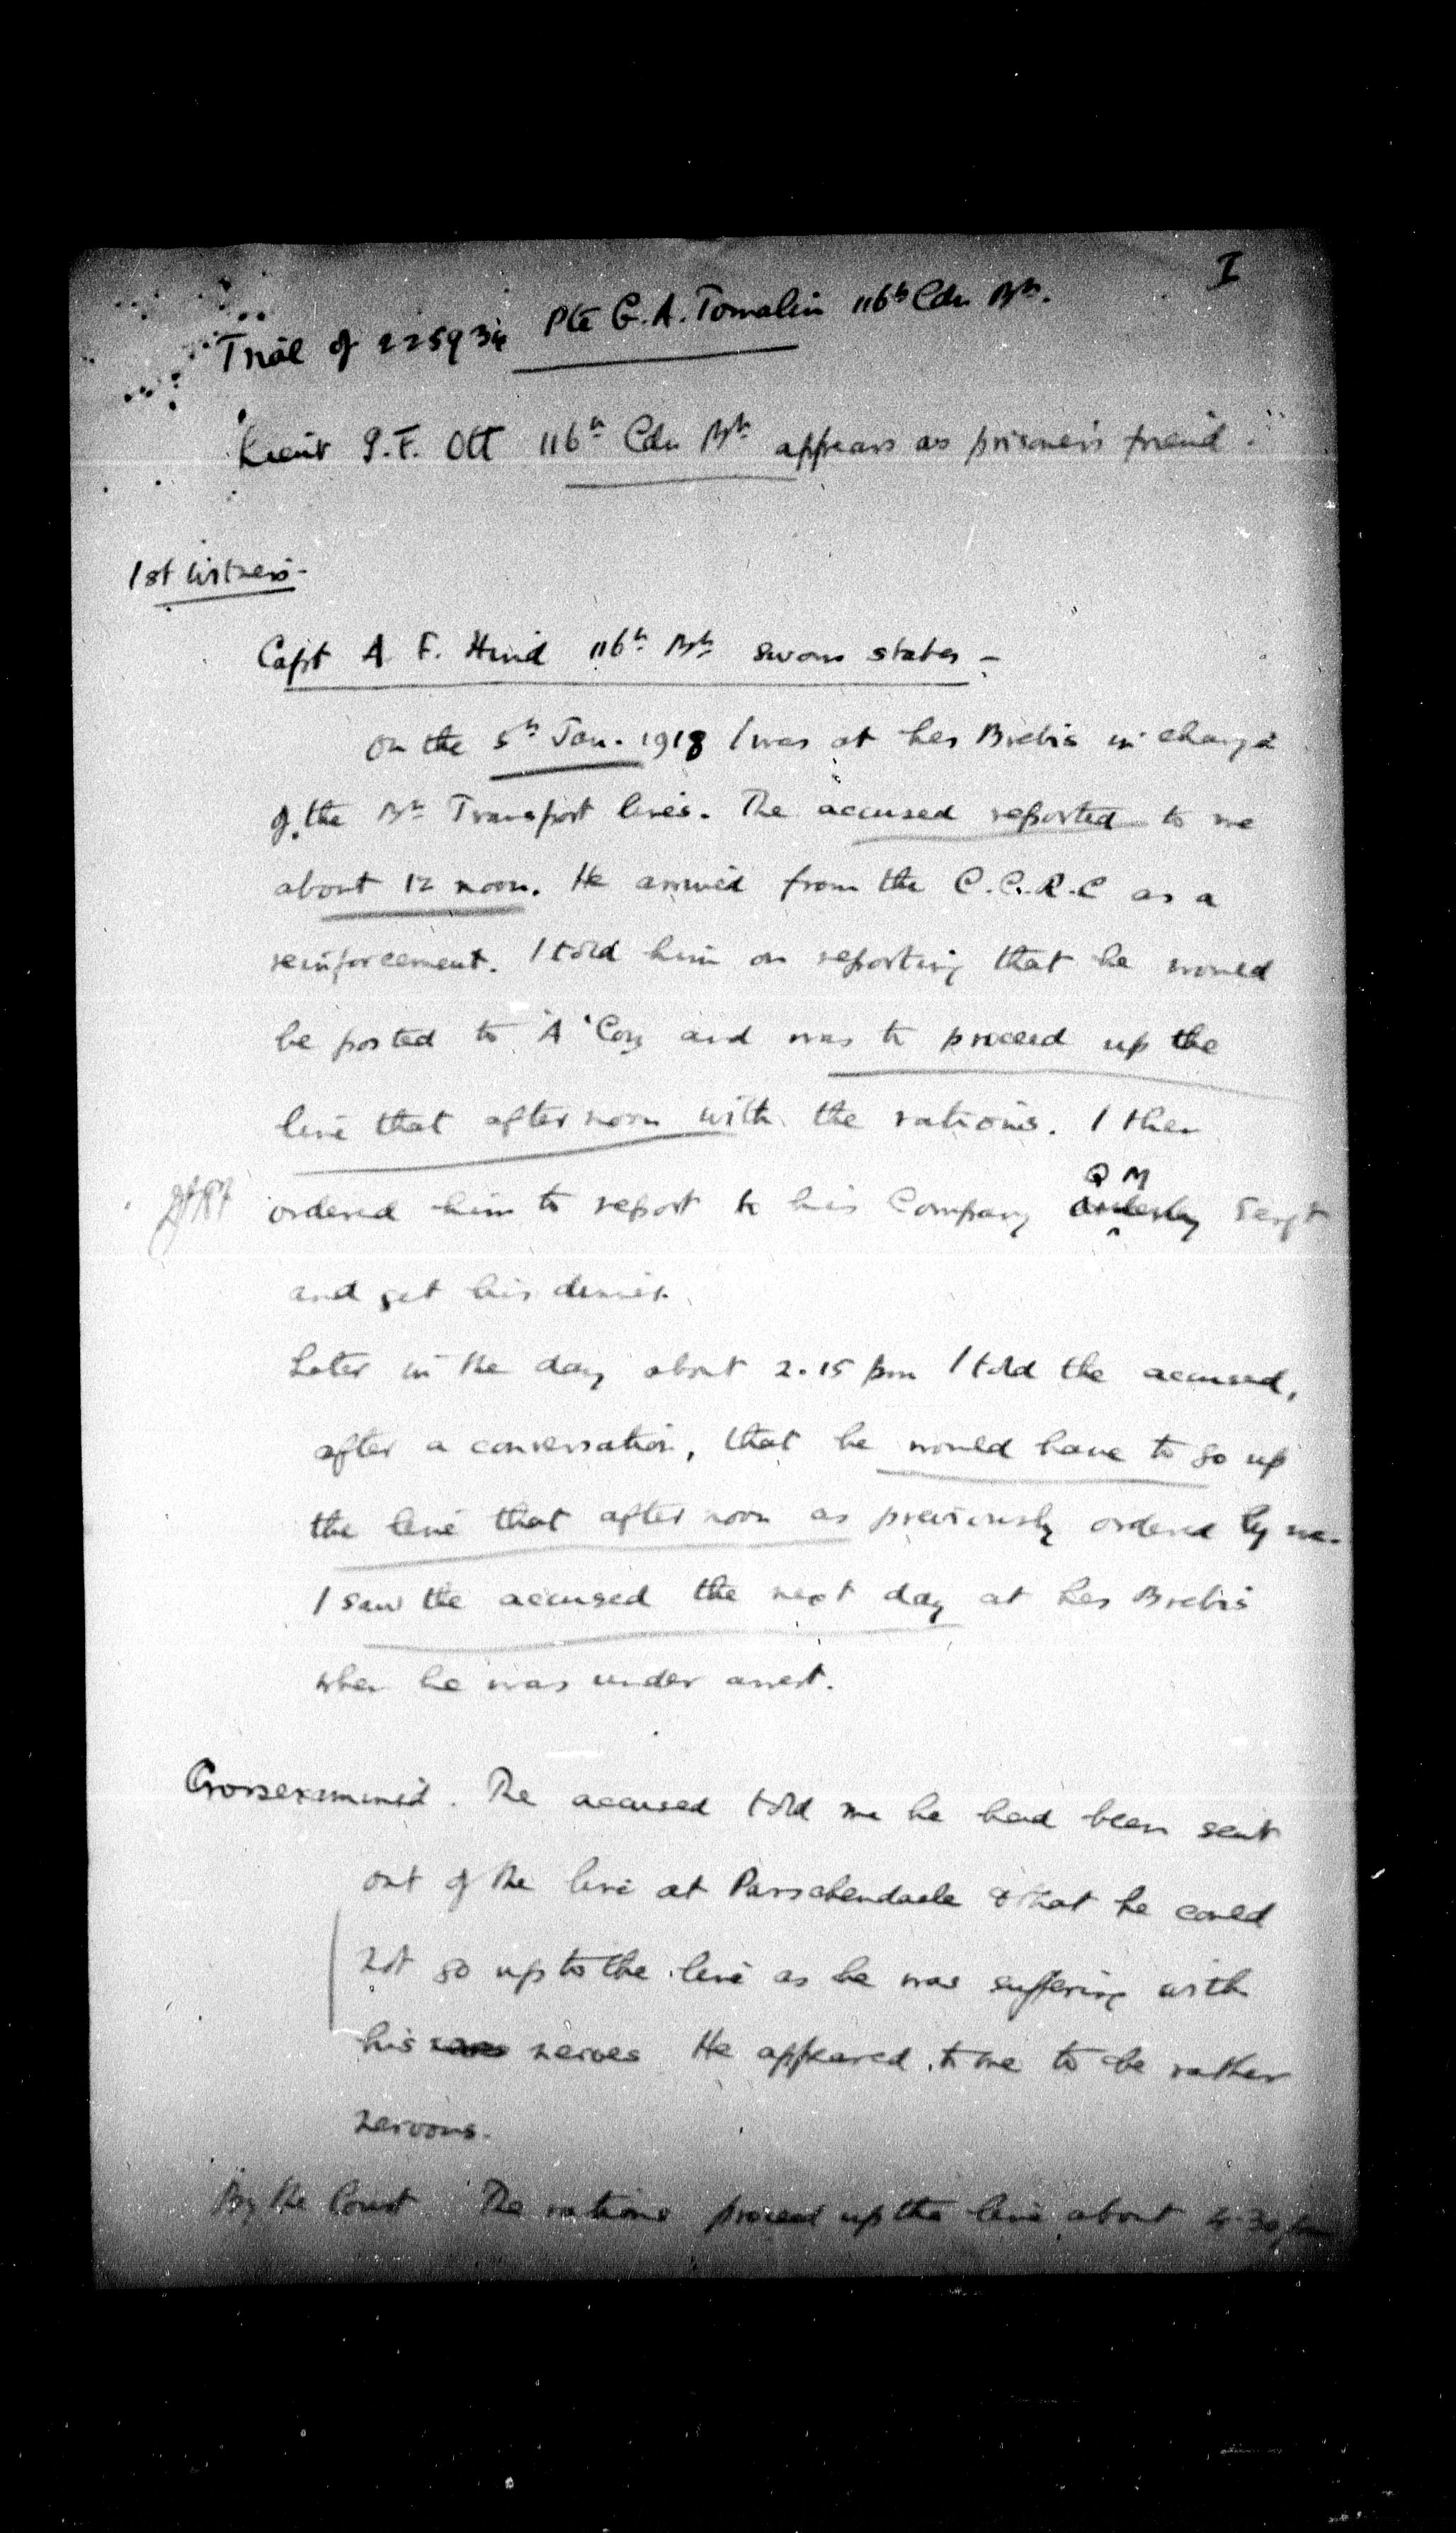 I
Trial of 225934 Pte G.A. Tomalin 116th Cdn Bn.
Lieut F. Ott 116th Cdn Bn appears as prisoner's friend.
1st Witness-
Capt A. F. Hind 116th Bn sworn states -
On the 5th Jan. 1918 I was at Les Brebis in charge
of the Bn Transport lines. The accused reported to me
about 12 noon. He arrived from the C.C.R.C as a
reinforcement. I told him on reporting that he would
be posted to 'A' Coy and was to proceed up the
line that afternoon with the rations. I then
Q M
ordered him to report to his Company orderly Sergt
and get his dinner.
Later in the day about 2.15 pm I told the accused,
after a conversation, that he would have to go up
the line that afternoon as previously ordered by me.
I saw the accused the next day at Les Brebis
when he was under arrest.
Crossexamined. The accused told me he had been sent
out of the line at Passchendaele & that he could
not go up to the line as he was suffering with
his nerves He appeared to me to be rather
nervous.
By the Court. The rations proceed up the line about 4.30 pm